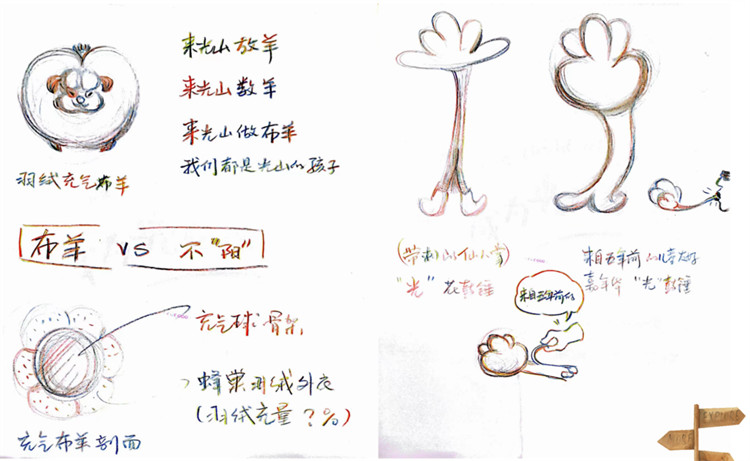 来光山放羊
来光山数羊
来光山做布羊
我们都是光山的孩子
羽绒充气布羊
布羊 VS 不"阳"
充气球骨架
蜂巢羽绒外衣
(羽绒充量?%)
充气布羊剖面
(带刺的仙人掌)
"光"花鼓锤
来自五年前的
嘉年华"光"鼓锤
来自五年前的